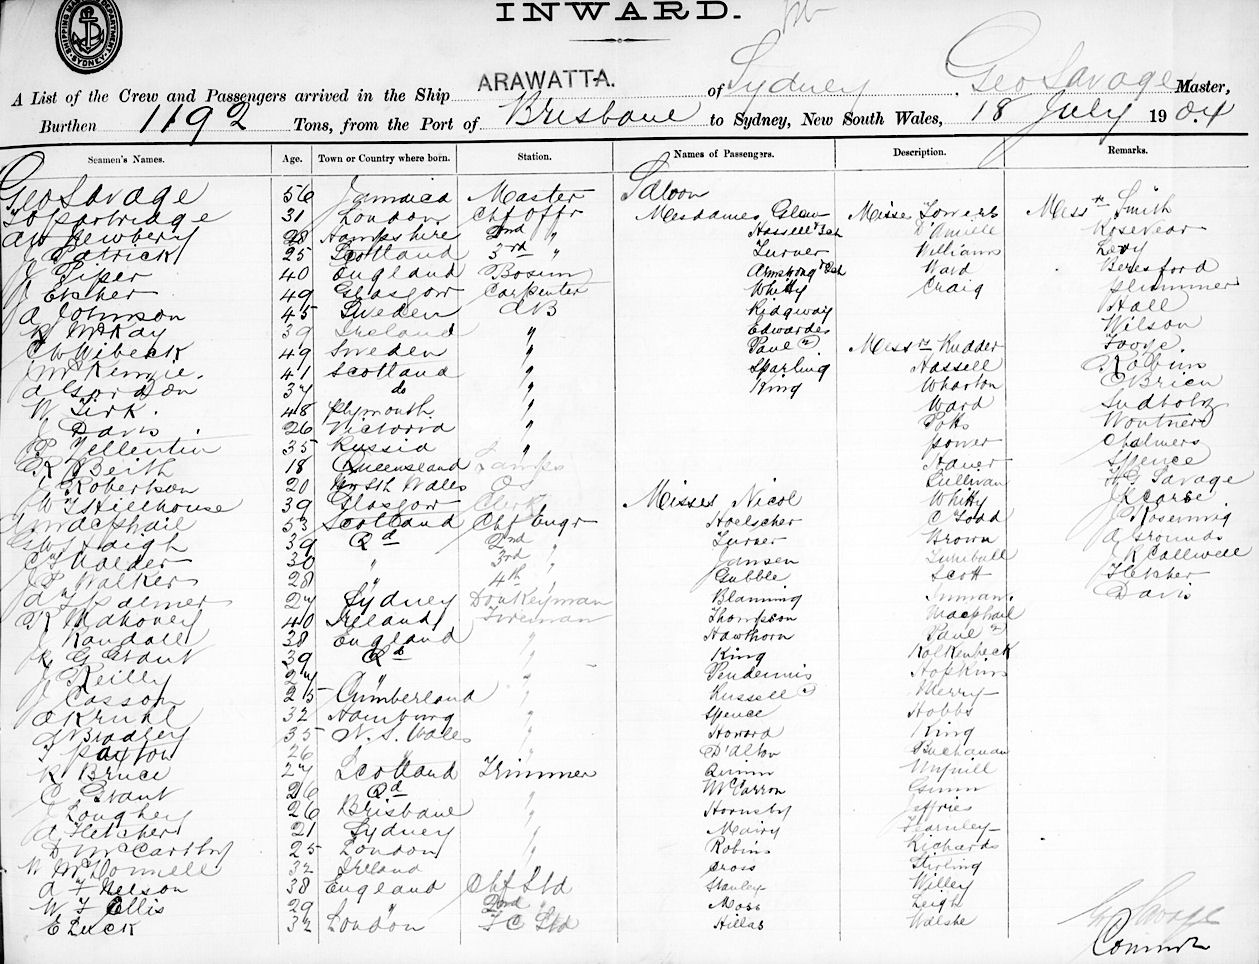 INWARD.
SHIPPING MASTER'S DEPARTMENT SYDNEY
A List of the Crew and Passengers arrived in the Ship ARAWATTA. of Sydney Geo Savage Master,
Burthen 1192 Tons, from the Port of Brisbane to Sydney, New South Wales, 18 July 1904
Seamen's Names. Age. Town or Country where born. Station. Names of Passengers. Description. Remarks.
Geo Savage 56 Jamaica Master
Partridge 31 London Chf Offr
Newbery 28 Hampshire 2nd "
Patrick 25 Scotland 3rd "
Piper 40 England Bosun
Etcher 49 Glasgow Carpenter
A Johnson 45 Sweden AB
McKay 39 Ireland "
C W Wibeck 49 Sweden "
J McKenzie. 41 Scotland "
A Gordon 37 do "
W. Kirk. 48 Plymouth "
J Davis 26 Victoria "
P Yellentin 35 Russia "
Beith 18 Queensland Lamps
Robertson 20 Nth Wales
Hillhouse 39 Glasgow Clerk
J Macphail 53 Scotland Chf Engr
Haigh 39 Do 2nd "
Calder 30 " 3rd "
P Walker 28 " 4th "
Palmer 27 Sydney Donkeyman
Mahoney 40 Ireland Fireman
J Randall 38 England "
Grant 39 Do "
J Reilly 27 " "
J Casson 25 Cumberland "
A Kruhl 32 Hamburg "
J Bradley 35 N. S. Wales "
T Paxton 26 " "
R Bruce 27 Scotland Trimmer
Grant 26 Do "
J Loughery 26 Brisbane "
A Fletcher 21 Sydney "
D McCarthy 25 London "
W McDonnell 32 Ireland "
A F Nelson 38 England Chf Std
W F Ellis 29 " 2nd "
E Luck 32 London F C Std
Saloon
Mesdames Glew
Hassell
Turner
Armstrong
Whitty
Ridgway
Edwardes
Paul
Sparling
King
Misses Nicol
Hoelscher
Turner
Jansen
Gubble
Blanning
Thompson
Hawthorn
King
Pendennis
Russell
Spence
Howard
D'Alton
Quinn
McCarron
Hornsby
Mairy
Robins
Cross
Stanley
Moss
Hillas
Misses Towers
Daniell
Williams
Ward
Craig
Messrs Rudder
Hassell
Wharton
Ward
Potts
Power
Hauer
Sullivan
Whitty
C Todd
Brown
Turnbull
Scott
Inman
Macphail
Paul
Kolkenbeck
Hopkins
Merry
Hobbs
King
Buchanan
Gunn
Jeffries
Fearnley
Richards
Stirling
Willey
Leigh
Walshe
Messrs Smith
Rosevear
Levy
Beresford
Plummer
Hall
Wilson
Toose.
Robins
OBrien
Sudholz
Woutner
Chalmers
Spence
Savage
Kearse
J Rosennig
A Grounds
J R Calliwell
Fletcher
Davis
G Savage